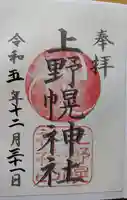 奉拝
上野幌神社
令和五年十二月三十一日